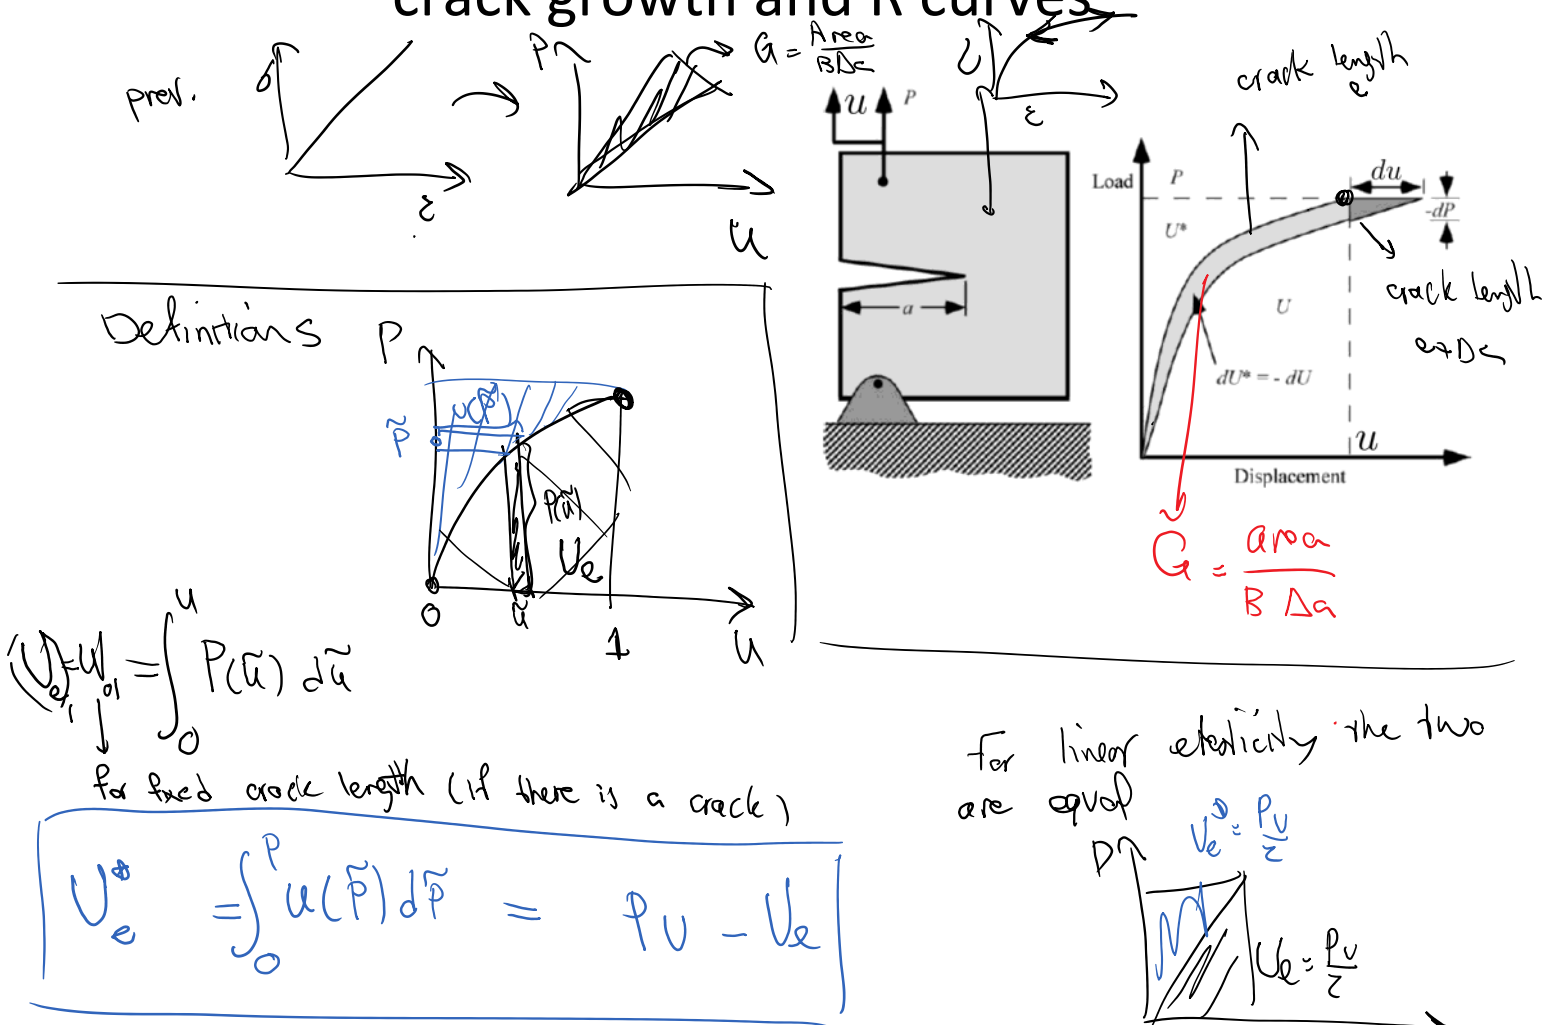 crack growth and R curves
prev.
σ
ε
P
u
G = Area / BΔa
σ
ε
u
P
a
crack length
a
Load
P
U*
du
-dP
U
dU* = - dU
u
Displacement
crack length
a+Δa
G = area / B Δa
Definitions
P
P̃
u(P̃)
P(ũ)
Ue
0
ũ
1
u
= ∫₀ᵘ P(ũ) dũ
for fixed crack length (if there is a crack)
Ue* = ∫₀ᴾ u(P̃) dP̃ = PU - Ue
For linear elasticity the two
are equal
Ue* = PU/2
P
Ue = PU/2